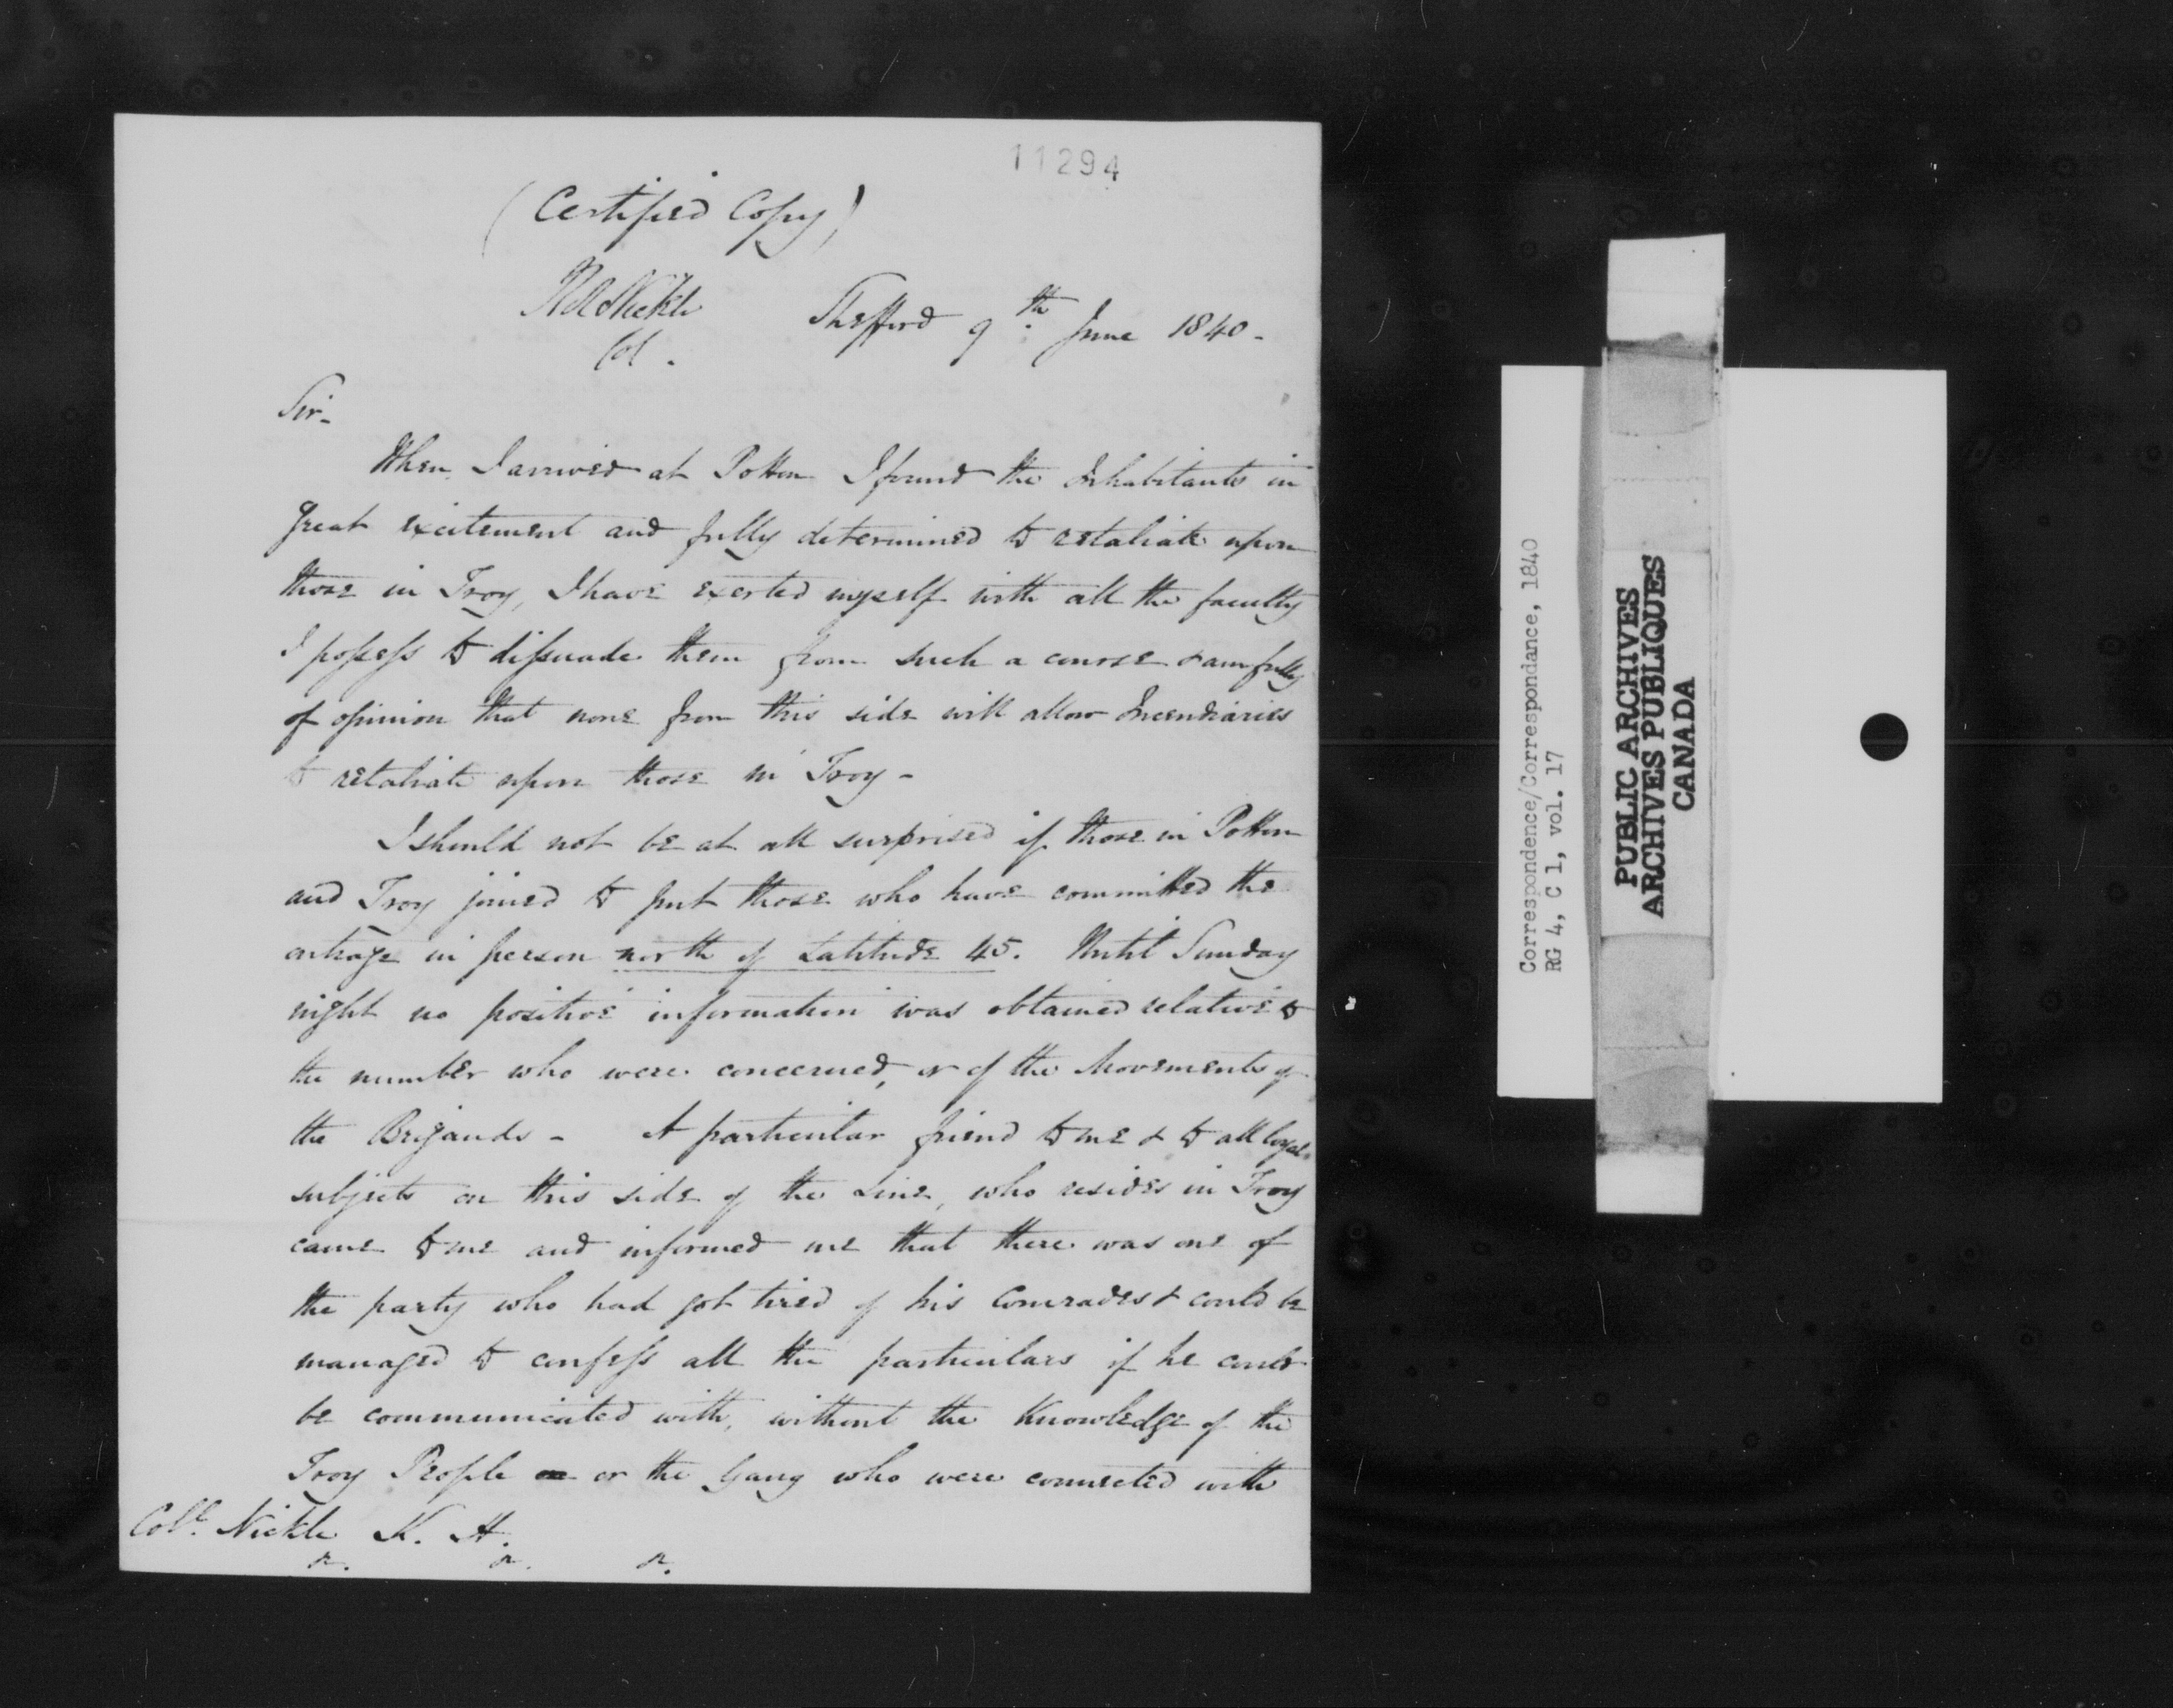 11294
(Certified Copy)
Col.
Shefford 9th June 1840 -
Sir -
When I arrived at Potton I found the Inhabitants in
great excitement and fully determined to retaliate upon
those in Troy, I have exerted myself with all the faculty
I possess to dissuade them from such a course & am fully
of opinion that none from this side will allow Incendiaries
to retaliate upon those in Troy -
I should not be at all surprised if those in Potton
and Troy joined to put those who have committed the
outrage in person north of Latitude 45. Until Sunday
night no positive information was obtained relative to
the number who were concerned, or of the Movements of
the Brigands - A particular friend to me & to all loyal
subjects on this side of the Line, who resides in Troy
came to me and informed me that there was one of
the party who had got tired of his Comrades & could be
managed to confess all the particulars if he could
be communicated with, without the Knowledge of the
Troy People or the Gang who were connected with
Coll. Nickle K. H.
&. &. &.
Correspondence/Correspondance, 1840
RG 4, C 1, vol. 17
PUBLIC ARCHIVES
ARCHIVES PUBLIQUES
CANADA